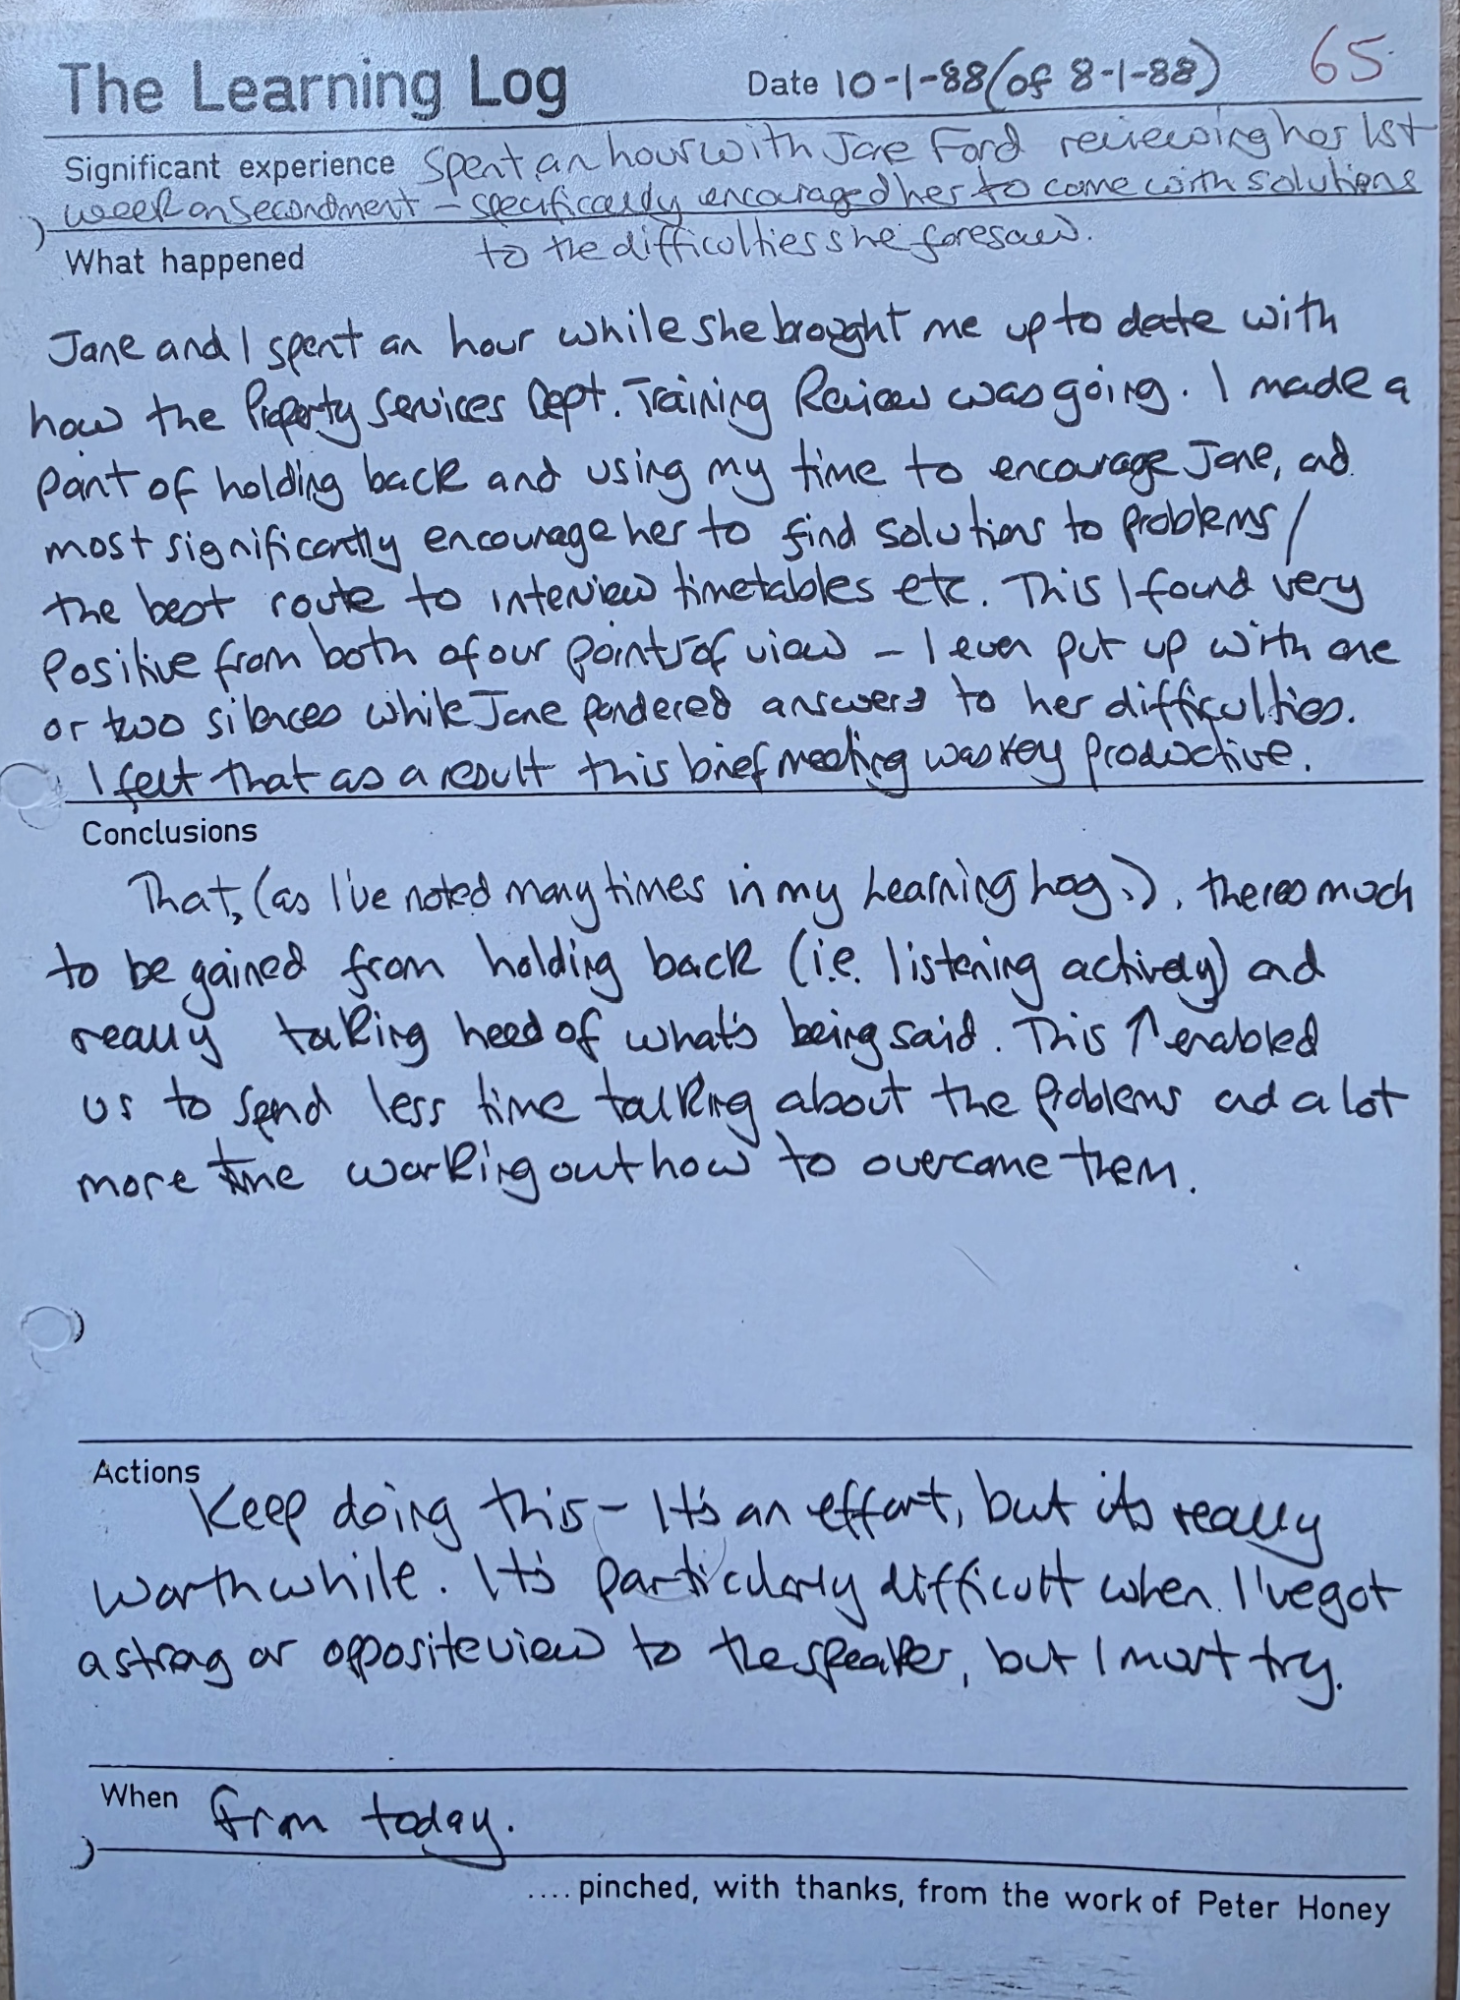 The Learning Log Date 10-1-88 (of 8-1-88) 65
Significant experience Spent an hour with Jane Ford reviewing her 1st
week on secondment – specifically encouraged her to come with solutions
to the difficulties she foresaw.
What happened
Jane and I spent an hour while she brought me up to date with
how the Property Services Dept. Training Review was going. I made a
point of holding back and using my time to encourage Jane, and
most significantly encourage her to find solutions to problems/
the best route to interview timetables etc. This I found very
positive from both of our points of view – I even put up with one
or two silences while Jane pondered answers to her difficulties.
I felt that as a result this brief meeting was very productive.
Conclusions
That, (as I've noted many times in my Learning Log.), theres much
to be gained from holding back (i.e. listening actively) and
really taking heed of what's being said. This ↑ enabled
us to spend less time talking about the problems and a lot
more time working out how to overcome them.
Actions
Keep doing this – It's an effort, but it's really
worthwhile. It's particularly difficult when I've got
a strong or opposite view to the speaker, but I must try.
When from today.
....pinched, with thanks, from the work of Peter Honey